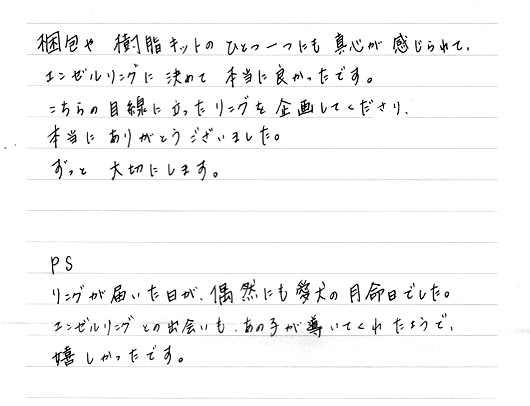 梱包や 樹脂キットの ひとつ一つにも 真心が 感じられて、
エンゼルリングに 決めて 本当に良かったです。
こちらの目線に立ったリングを 企画してくださり、
本当に ありがとうございました。
ずっと 大切にします。
PS
リングが届いた日が、偶然にも愛犬の月命日でした。
エンゼルリングとの出会いも、あの子が導いてくれたようで、
嬉しかったです。